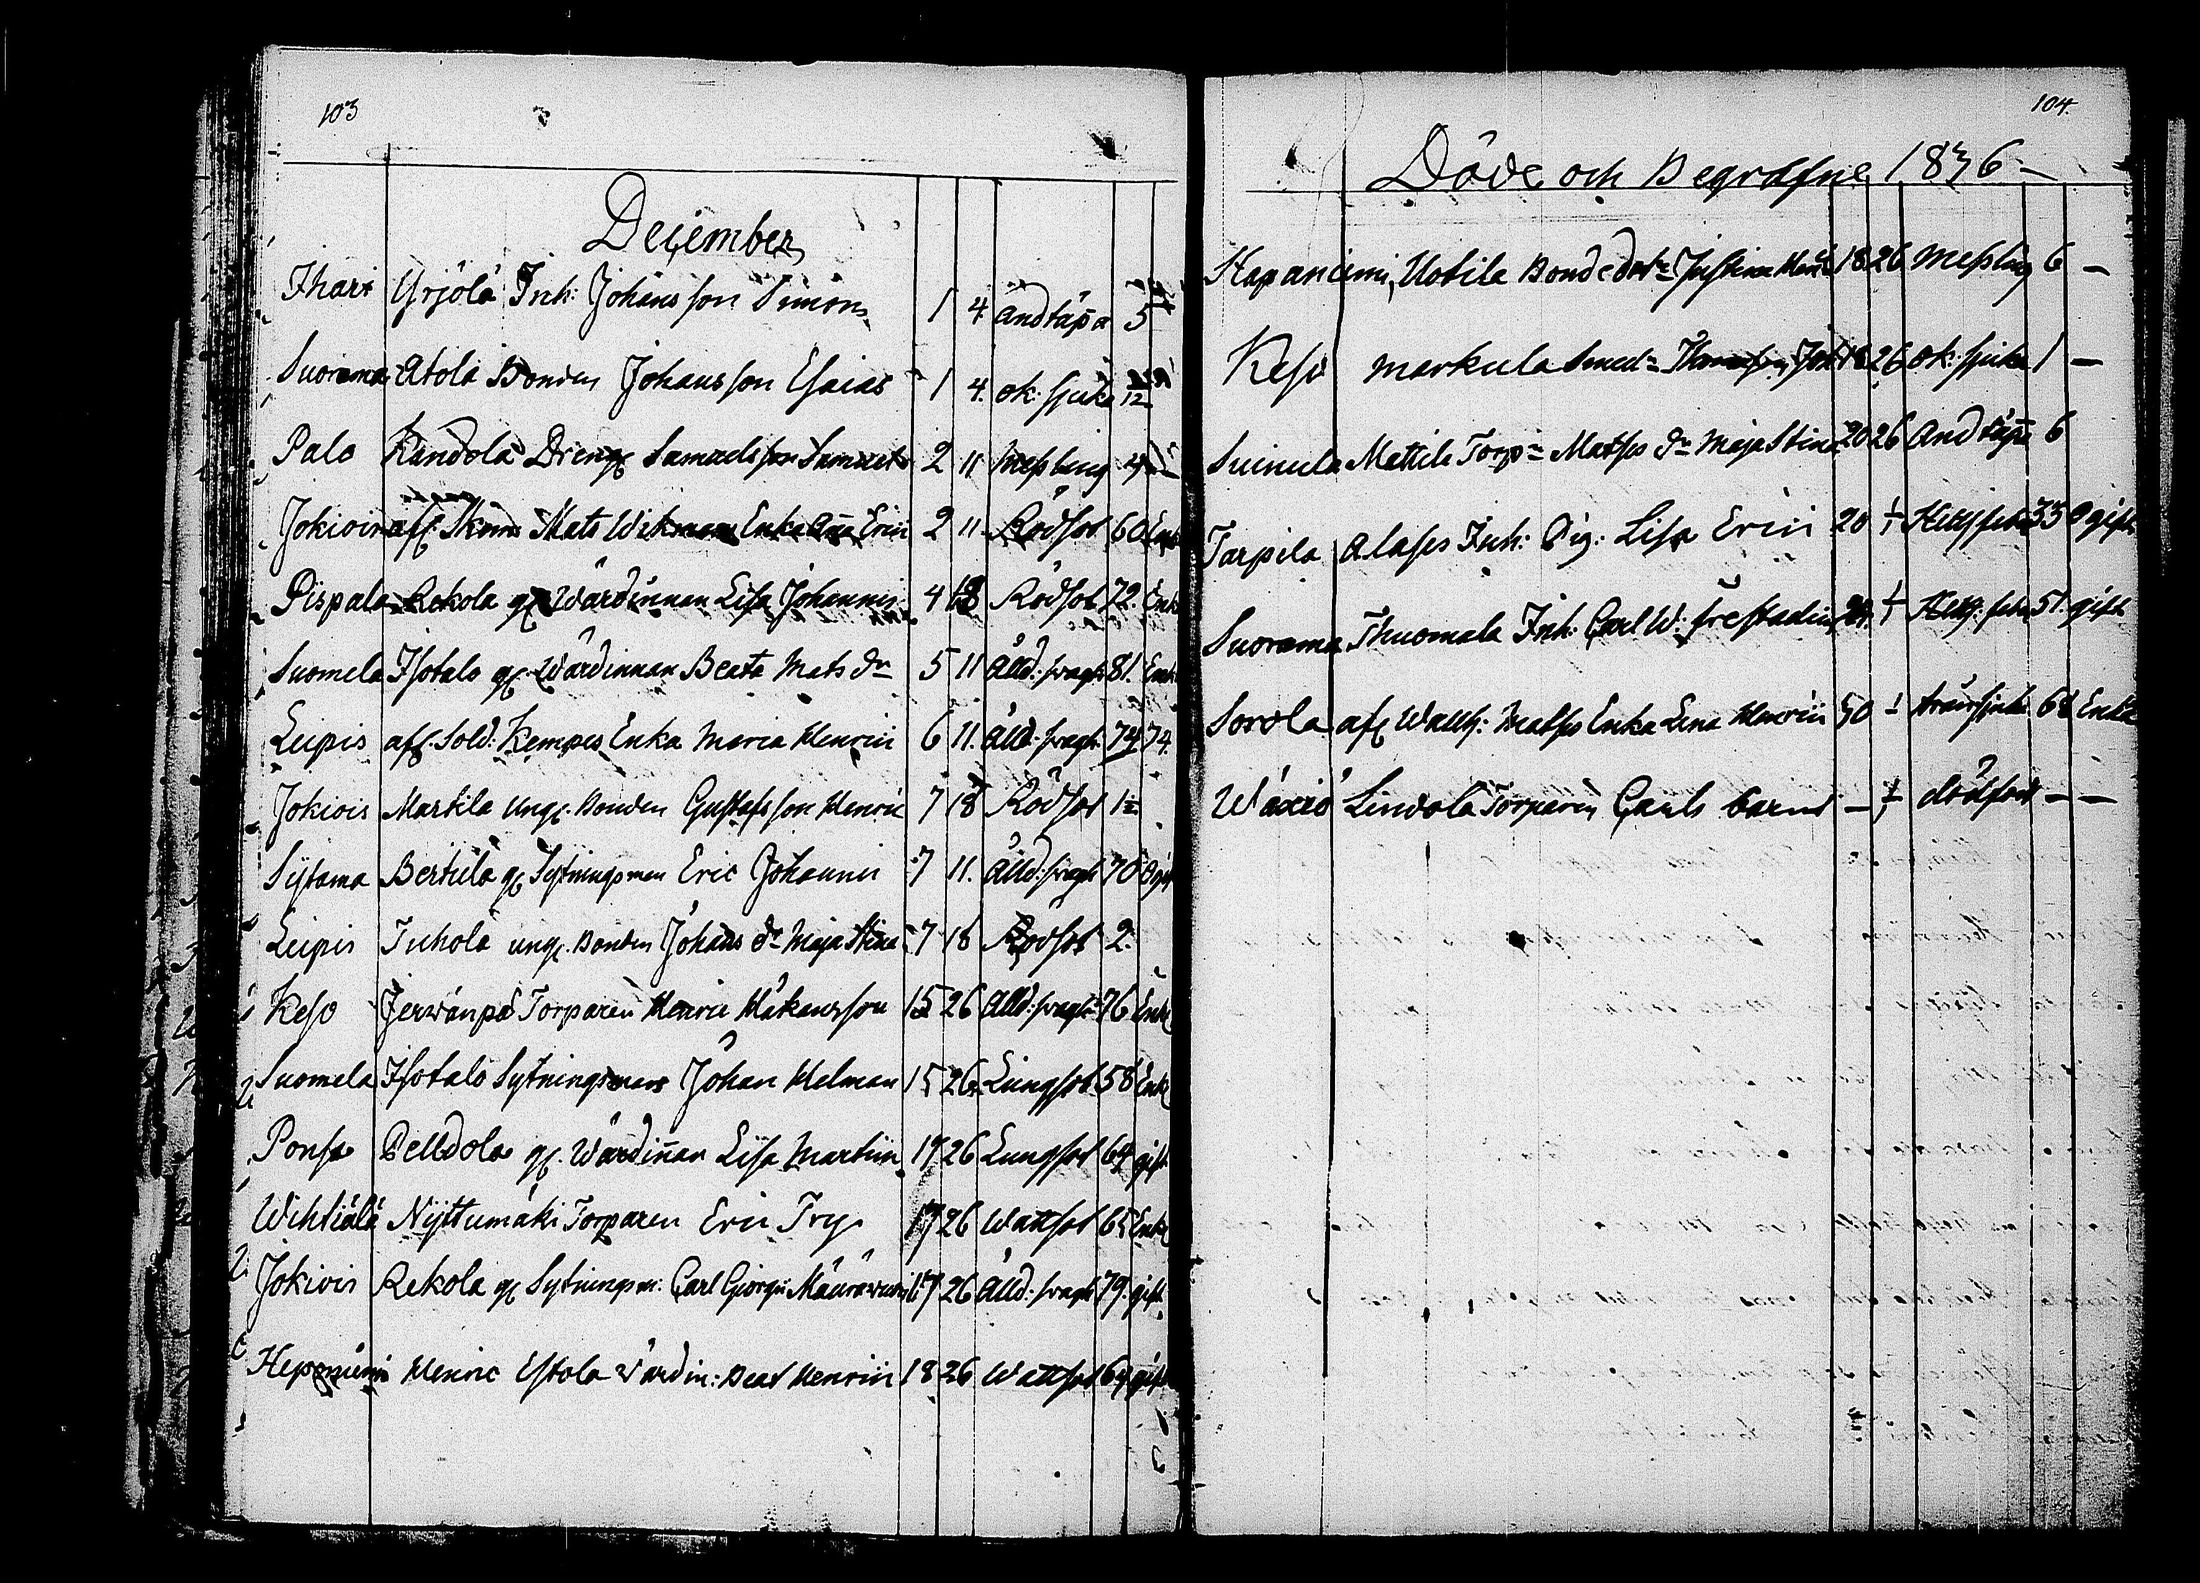 103
December
Ihari Yrjölä Inh: Johans son Simon 1 4. andtäpa 5
Suorama Atola Bonden Johans son Esaias 1 4. ok: sjuka
Palo Kandola Dreng Samuels son Samuel 2 11 Messling
Jokiois afl. Mats Enka Erici 2 11 Rödsot 60 Enka
Pispala Rekola gl. Wärdinnan Lisa Johannis 4 18 Rödsot 72. Enk
Suomela Isotalo gl. Wärdinnan Beata Mats dr 5 11 ålld: svagh 81. Enk
Leipis afl. Sold: Kempes Enka Maria Henrici 6 11. ålld: svagh. 74 74.
Jokiois Martila ungl. Bonden Gustafs son Henric 7 18 Rödsot 1
Sijtama Bertula gl. Sytningsman Eric Johannis 7 11. ålld: svagh 70 Ogift
Leipis Juhola ungl. Bonden Johans dr Maja Stina 7 18 Rödsot 2.
Keso Jerwänpä Torparen Henric Håkansson 15 26 ålld: svagh 76 Enkl
Suomela Isotalo Sytningsman Johan Helman 15 26 Lungsot 58 Enkl
Ponsa Pelldola gl. Wärdinan Lisa Martin 17 26 Lungsot 64 gift
Wihtiälä Nijttumäki Torparen Eric Try 17 26 Wattsot 65 Enkl
Jokiois Rekola gl Sytningsm: Carl Georgii 17 26 ålld: svagh 79. gift
Heponiemi Henric Estola Värdin: Beat Henrici 18 26 Wattsot 64 gift
104.
Döde och Begrafne 1836
Hapaniemi, Uotila Bonde dotr Justina 18 26 Messling 6 —
Keso Markula Smed Joh 18 26 ok: sjuka 1 —
Suinula Mattila Torp Matss dr Maja Stina 20 26 Andtäpa 6
Tarpila Alases Inh: Pig: Lisa Erici 20 Hetsj feber 33 Ogift
Suorama Thuomala Inh: Carl W: Frestadius Hetsj: feber 51. gift
Sorola afl Wallh: Matss Enka Lena Henrici 30 68 Enka
Wäxiö Lindola Torparen Carls barns — dödfödt — —